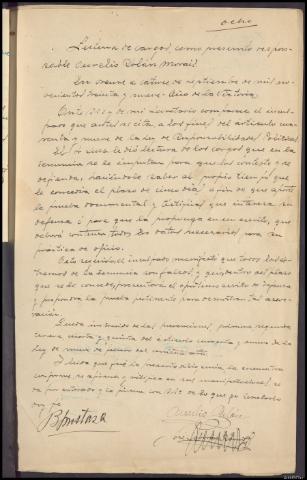 ocho
Lectura de cargos, como presunto respon-
sable Aurelio Dolán Morais
En Orense a catorce de septiembre de mil no-
vecientos treinta y nueve. Año de la Victoria.
Ante SSª y de mi Secretario comparece el incul-
pado que antes se cita a los fines del artículo cua-
renta y nueve de la Ley de Responsabilidades Políticas
SSª le dió lectura de los cargos que en la
denuncia se le imputan para que los conteste y se
defienda, haciéndole saber al propio tiempo que
le concedía el plazo de cinco días a fin de que aporte
la prueba documental y testifical que interese su
defensa o para que la proponga en un escrito, que
deberá contener todos los datos necesarios para su
práctica de oficio.
el inculpado manifestó que todos los ex-
tremos de la denuncia son falsos, y que dentro del plazo
que se le concede, presentará el oportuno escrito de defensa
y propondrá la prueba pertinente para demostrar al aseve-
ración.
Queda instruido de las prevenciones primera segunda
tercera cuarta y quinta del artículo cincuenta y nueve de la
Ley de
y leída que fué la presente diligencia la encuentra
conforme, se afirma y ratifica en sus manifestaciones, se
da por enterado y la firma con SSª de lo que yo Secretario
doy fe
B. Bustoza
Aurelio Dolán